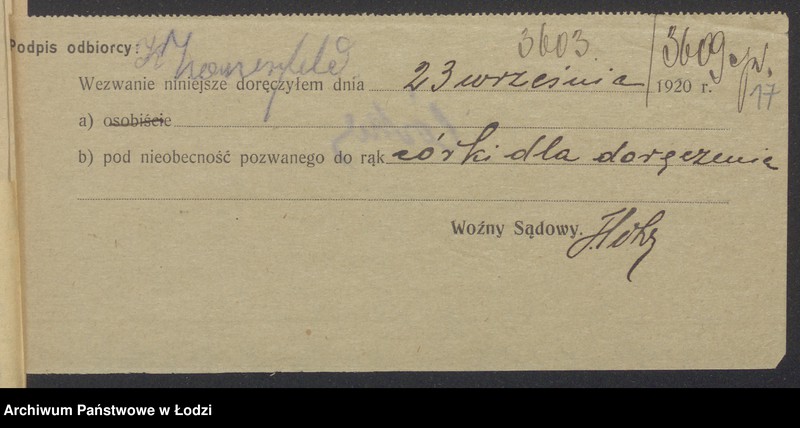 3603 3609
Podpis odbiorcy:
Wezwanie niniejsze doręczyłem dnia 23 września 1920 r. 17
a) osobiście
b) pod nieobecność pozwanego do rąk córki dla doręczenia
Woźny Sądowy.
Archiwum Państwowe w Łodzi